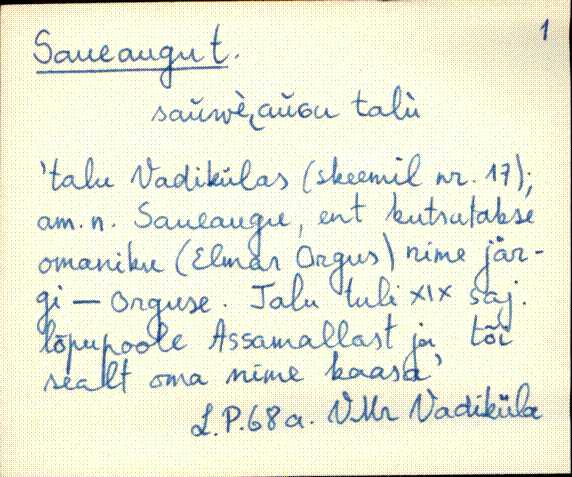 1
Saueaugu t.
saŭwè‿aŭɢu talù
'talu Vadikülas (skeemil nr. 17);
am. n. Saueaugu, ent kutsutakse
omaniku (Elmar Orgus) nime jär-
gi — Orguse. Talu tuli XIX saj.
lõpupoole Assamallast ja tõi
sealt oma nime kaasa'
L.P. 68 a. VMr Vadiküla